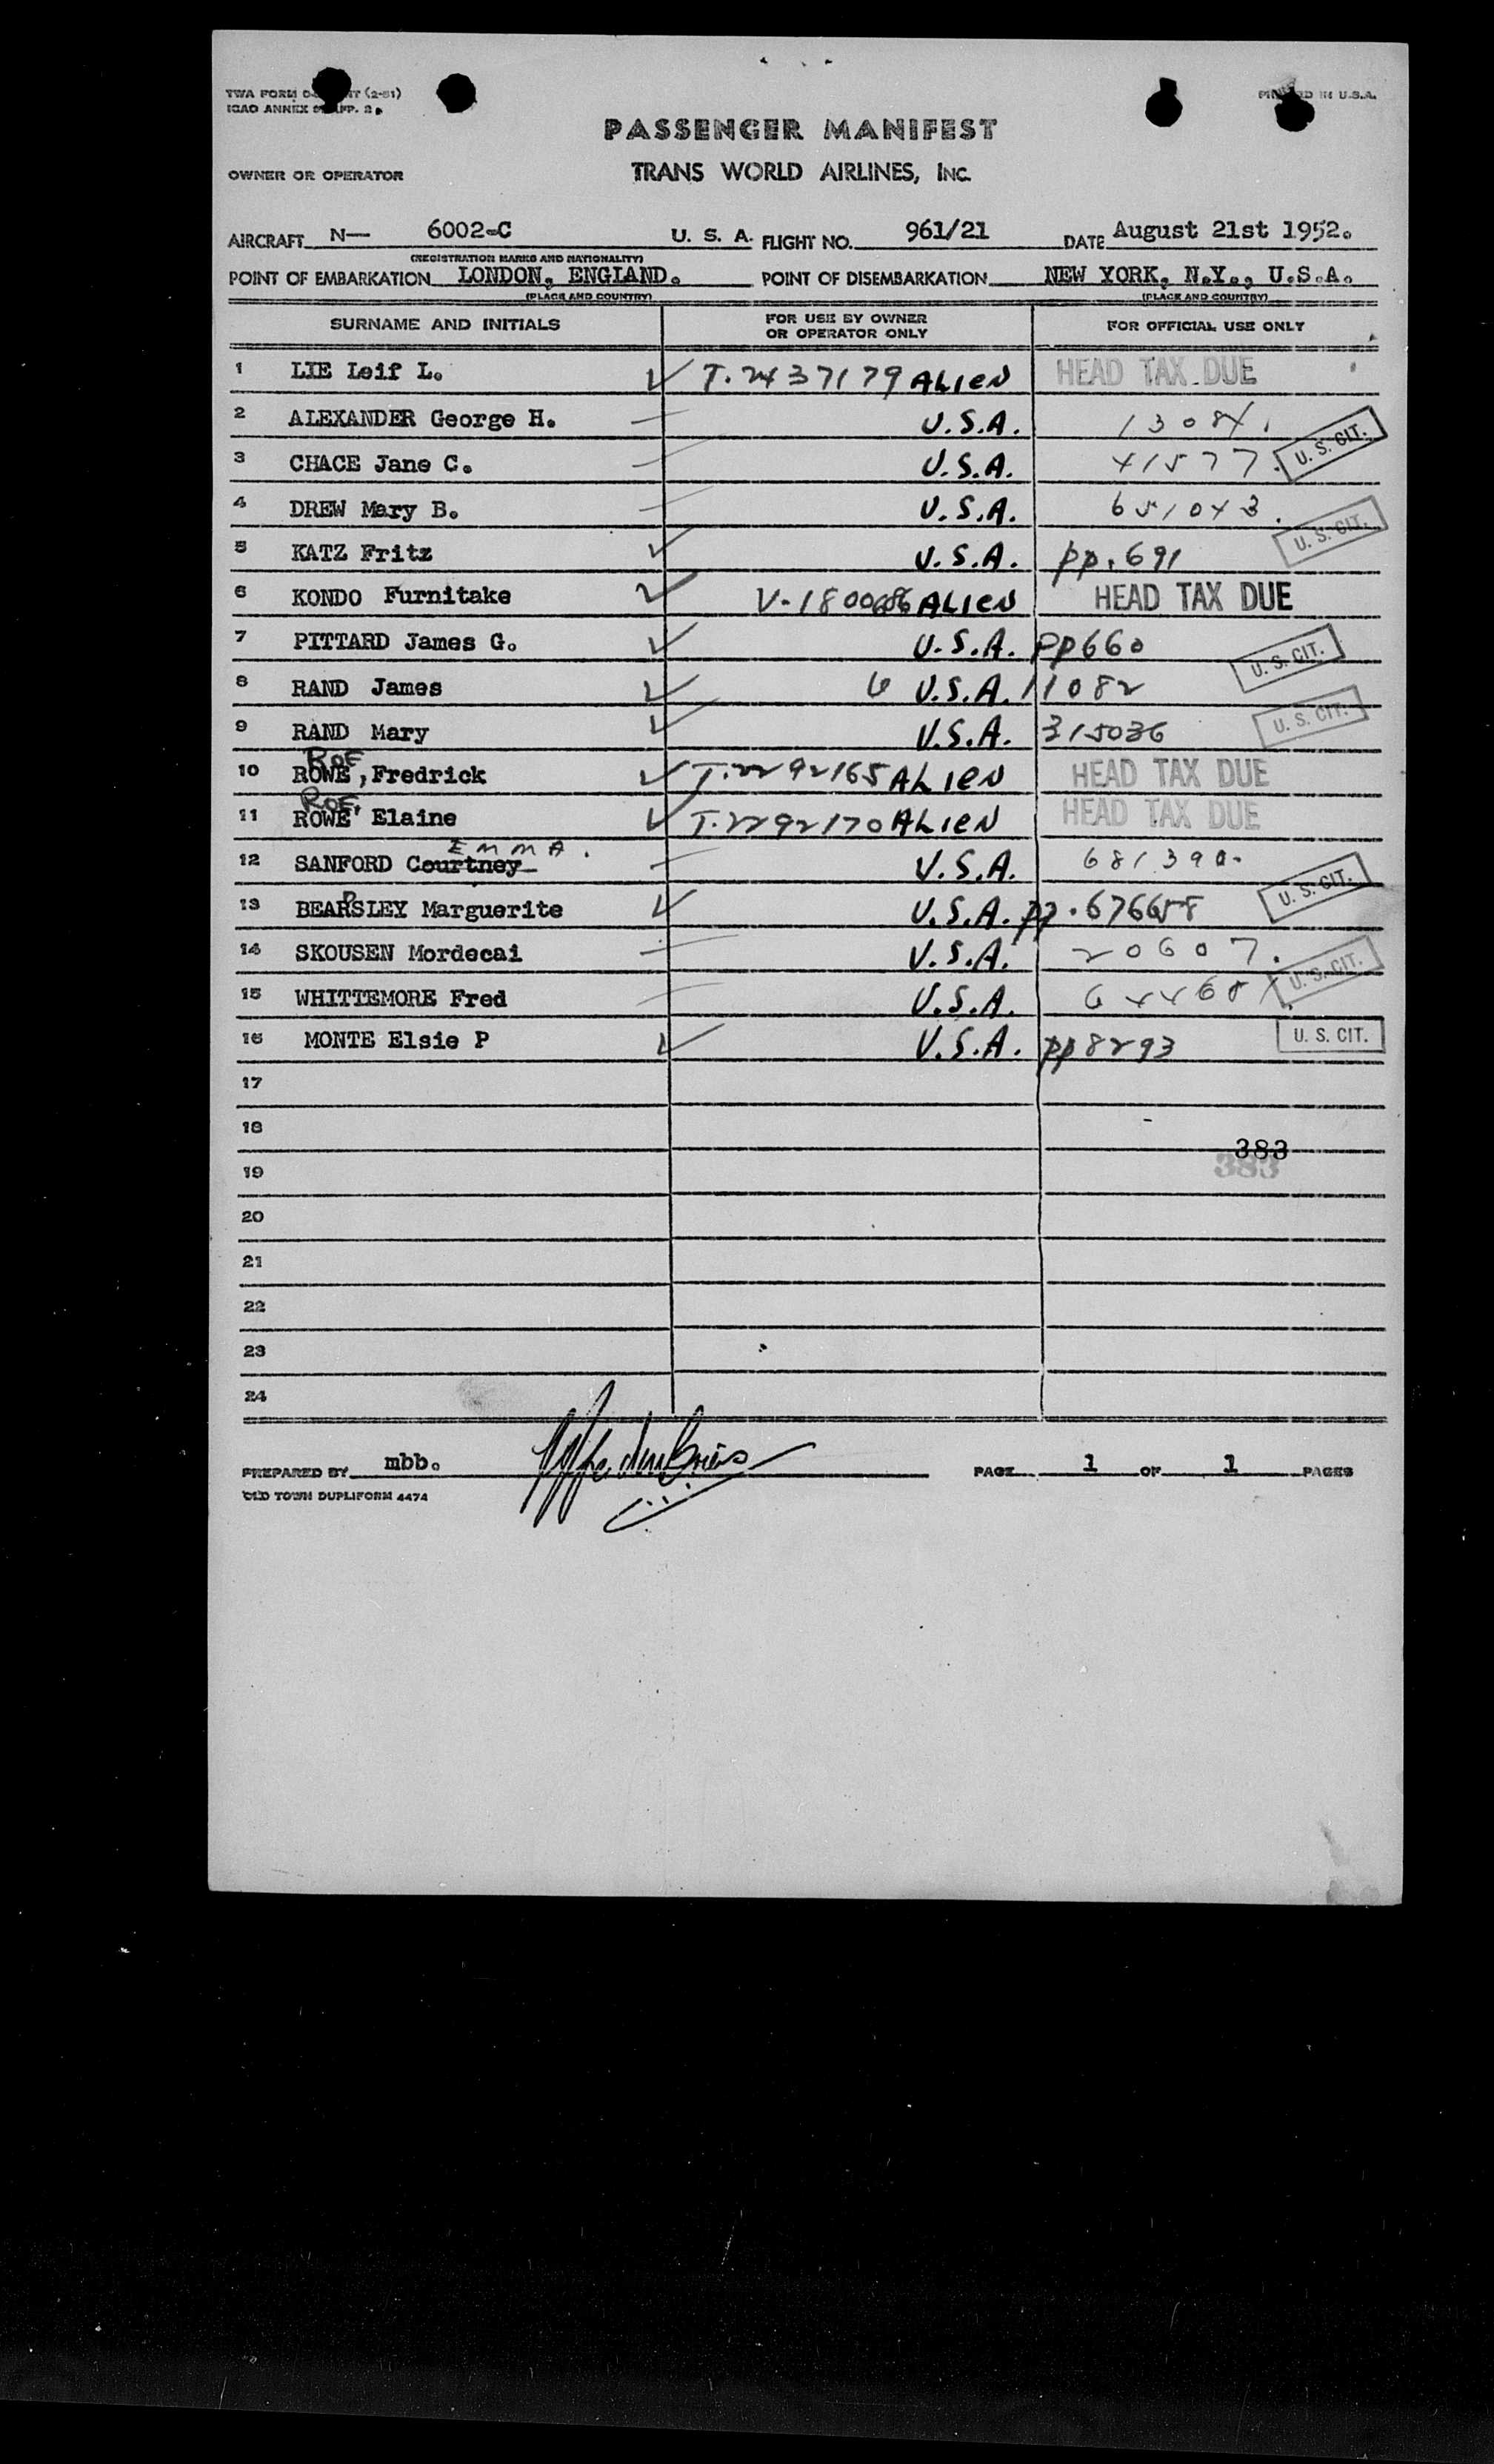 TWA FORM (2-51)
ICAO ANNEX 9 APP. 2
PRINTED IN U.S.A.
PASSENGER MANIFEST
OWNER OR OPERATOR TRANS WORLD AIRLINES, INC.
AIRCRAFT N— 6002-C U. S. A. FLIGHT NO. 961/21 DATE August 21st 1952.
(REGISTRATION MARKS AND NATIONALITY)
POINT OF EMBARKATION LONDON, ENGLAND. POINT OF DISEMBARKATION NEW YORK, N.Y., U.S.A.
(PLACE AND COUNTRY) (PLACE AND COUNTRY)
SURNAME AND INITIALS FOR USE BY OWNER OR OPERATOR ONLY FOR OFFICIAL USE ONLY
1 LIE Leif L. T.2437179 ALIEN HEAD TAX DUE
2 ALEXANDER George H. U.S.A. 13084.
3 CHACE Jane C. U.S.A. 41577. U. S. CIT.
4 DREW Mary B. U.S.A. 651043.
5 KATZ Fritz U.S.A. pp.691 U. S. CIT.
6 KONDO Furnitake V-1800686 ALIEN HEAD TAX DUE
7 PITTARD James G. U.S.A. pp660 U. S. CIT.
8 RAND James U.S.A. 11082
9 RAND Mary U.S.A. 315036 U. S. CIT.
ROE
10 ROWE, Fredrick T.2292165 ALIEN HEAD TAX DUE
ROE,
11 ROWE Elaine T.2292170 ALIEN HEAD TAX DUE
EMMA.
12 SANFORD Courtney U.S.A. 681390.
13 BEARSLEY Marguerite U.S.A. pp.676658 U. S. CIT.
14 SKOUSEN Mordecai U.S.A. 20607.
15 WHITTEMORE Fred U.S.A. U. S. CIT.
16 MONTE Elsie P U.S.A. pp8293 U. S. CIT.
17
18
383
383
19
20
21
22
23
24
PREPARED BY mbb. PAGE 1 OF 1 PAGES
OLD TOWN DUPLIFORM 4474